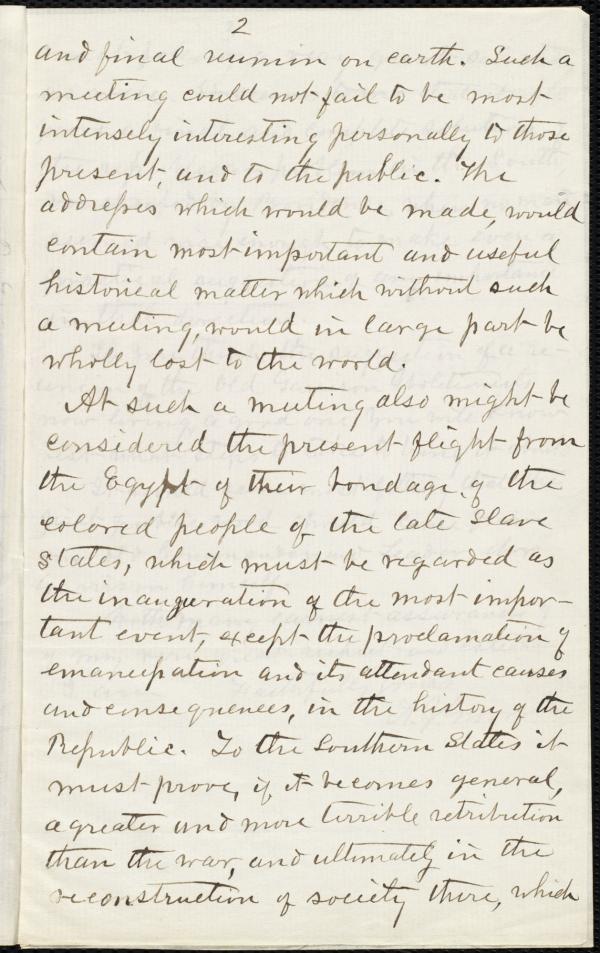 2
and final reunion on earth. Such a
meeting could not fail to be most
intensely interesting personally to those
present, and to the public. The
addresses which would be made, would
contain most important and useful
historical matter which without such
a meeting, would in large part be
wholly lost to the world.
At such a meeting also might be
considered the present flight from
the Egypt of their bondage, of the
colored people of the late Slave
States, which must be regarded as
the inauguration of the most impor-
tant event, except the proclamation of
emancipation and its attendant causes
and consequences, in the history of the
Republic. To the Southern States it
must prove, if it becomes general,
a greater and more terrible retribution
than the war, and ultimately in the
reconstruction of society there, which